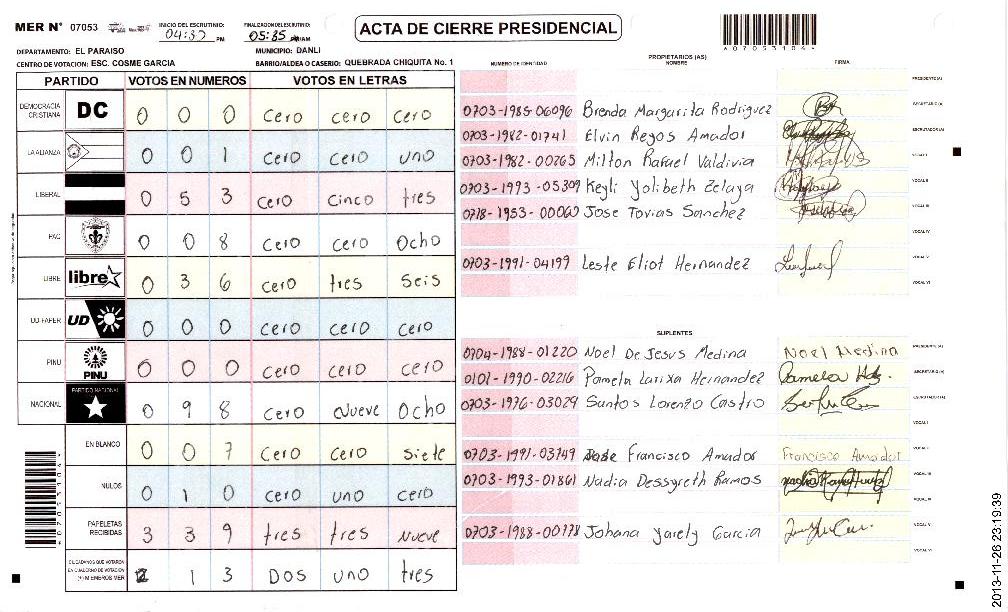 MER N° 07053
INICIO DEL ESCRUTINIO: 04:30 PM
FINALIZACION DEL ESCRUTINIO: 05:35 AM
ACTA DE CIERRE PRESIDENCIAL
DEPARTAMENTO: EL PARAISO
MUNICIPIO: DANLI
CENTRO DE VOTACION: ESC. COSME GARCIA
BARRIO/ALDEA O CASERIO: QUEBRADA CHIQUITA No. 1
PARTIDO VOTOS EN NUMEROS VOTOS EN LETRAS
DEMOCRACIA CRISTIANA DC 0 0 0 cero cero cero
LA ALIANZA 0 0 1 cero cero uno
LIBERAL 0 5 3 cero cinco tres
PAC 0 0 8 cero cero Ocho
LIBRE libre 0 3 6 cero tres seis
UD-FAPER UD 0 0 0 cero cero cero
PINU PINU 0 0 0 cero cero cero
NACIONAL PARTIDO NACIONAL 0 9 8 cero nueve Ocho
EN BLANCO 0 0 7 cero cero siete
NULOS 0 1 0 cero uno cero
PAPELETAS RECIBIDAS 3 3 9 tres tres nueve
CIUDADANOS QUE VOTARON EN CUADERNO DE VOTACION (+) MIEMBROS MER 2 1 3 Dos uno tres
07053104
NUMERO DE IDENTIDAD
PROPIETARIOS (AS)
NOMBRE
FIRMA
PRESIDENTE(A)
0703-1985-06096 Brenda Margarita Rodriguez SECRETARIO(A)
0703-1982-01741 Elvin Regos Amador ESCRUTADOR(A)
0703-1982-00265 Milton Rafael Valdivia VOCAL I
0703-1993-05309 Keyli Yolibeth Zelaya VOCAL II
0718-1953-00060 Jose Tovias Sanchez VOCAL III
VOCAL IV
0703-1991-04199 Leste Eliot Hernandez VOCAL V
VOCAL VI
SUPLENTES
0704-1988-01220 Noel De Jesus Medina Noel Medina PRESIDENTE(A)
0101-1990-02216 Pamela Larixa Hernandez Pamela Hdz. SECRETARIO(A)
0703-1976-03029 Santos Lorenzo Castro ESCRUTADOR(A)
VOCAL I
0703-1991-03749 Jose Francisco Amador Francisco Amador VOCAL II
0703-1993-01861 Nadia Dessyreth Ramos VOCAL III
VOCAL IV
0703-1988-00778 Johana Yarely Garcia VOCAL V
VOCAL VI
07053104
2013-11-26 23:19:39